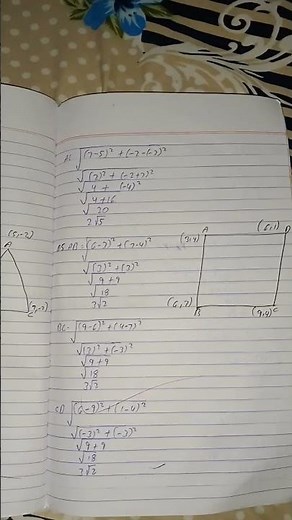 AC √(7-5)² + (-7-(-2))²
√(2)² + (-2+7)²
√4 + (-4)²
√4+16
√20
2√5
(5,-2)
A
C
AB √(6-3)² + (7-4)²
√(3)² + (3)²
√9+9
√18
3√2
A
(6,1) D
(3,4)
(6,7)
B
(9,4) C
BC- √(9-6)² + (4-7)²
√(3)² + (-3)²
√9+9
√18
3√2
CD √(6-9)² + (1-4)²
√(-3)² + (-3)²
√9+9
√18
3√2